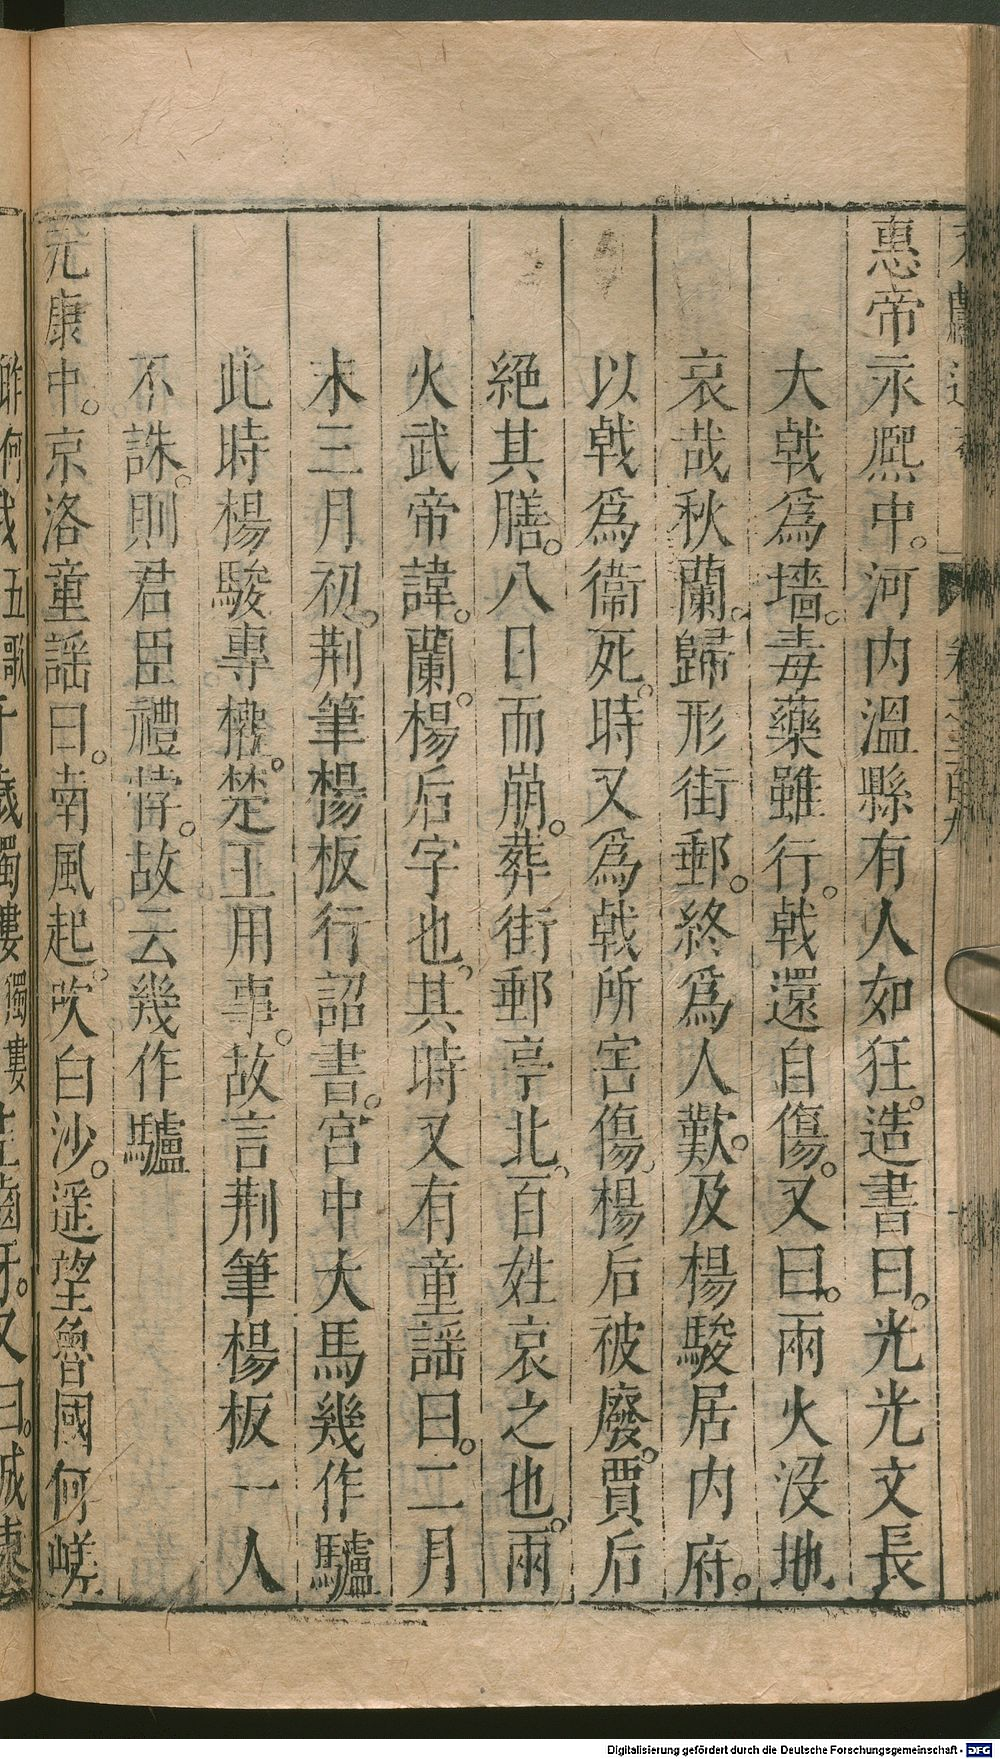 惠帝永熈中。河内溫縣有人如狂。造書曰。光光文長
大戟爲墻。毒藥雖行。戟還自傷。又曰。兩火没地
哀哉秋蘭。歸形街郵。終爲人歎。及楊駿居内府。
以戟爲衞死。時又爲戟所害傷。楊后被廢。賈后
絕其膳。八日而崩。葬街郵亭北。百姓哀之也。兩
火武帝諱。蘭。楊后字也。其時又有童謡曰。二月
末三月初。荆筆楊板行詔書。宮中大馬幾作驢
此時楊駿專權。楚王用事。故言荆筆楊板一人
不誅。則君臣禮悖。故云幾作驢
元康中。京洛童謡曰。南風起。吹白沙。遥望魯國何嵯
峨千歲髑髏生齒牙。又曰。城東
Digitalisierung gefördert durch die Deutsche Forschungsgemeinschaft - DFG